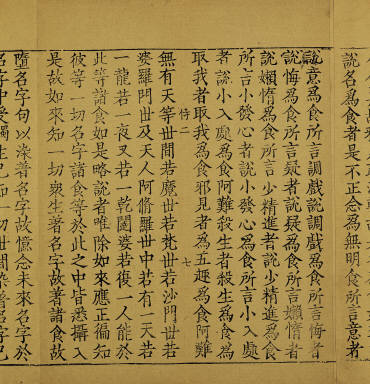 說名爲食者是不正念爲無明食所言意者
說意爲食所言調戲說調戲爲食所言悔者
說悔爲食所言疑者說疑爲食所言嬾惰者
說嬾惰爲食所言少精進者說少精進爲食
所言小發心者說小發心爲食所言小入處
者說小入處爲食阿難殺生者殺生爲食
取我者取我爲食邪見者爲五趣爲食阿難
恃二 七
無有天等世間若魔世若梵世若沙門世若
婆羅門世及天人阿脩羅世中若有一天若
一龍若一夜叉若一乾闥婆若復一人能於
此等諸食如是略說者唯除如來應正徧知
彼等一切名字諸食等於此之中皆悉攝入
是故如來知一切衆生著名字故著諸食故
墮名字句以染著名字故憶念未來名字於